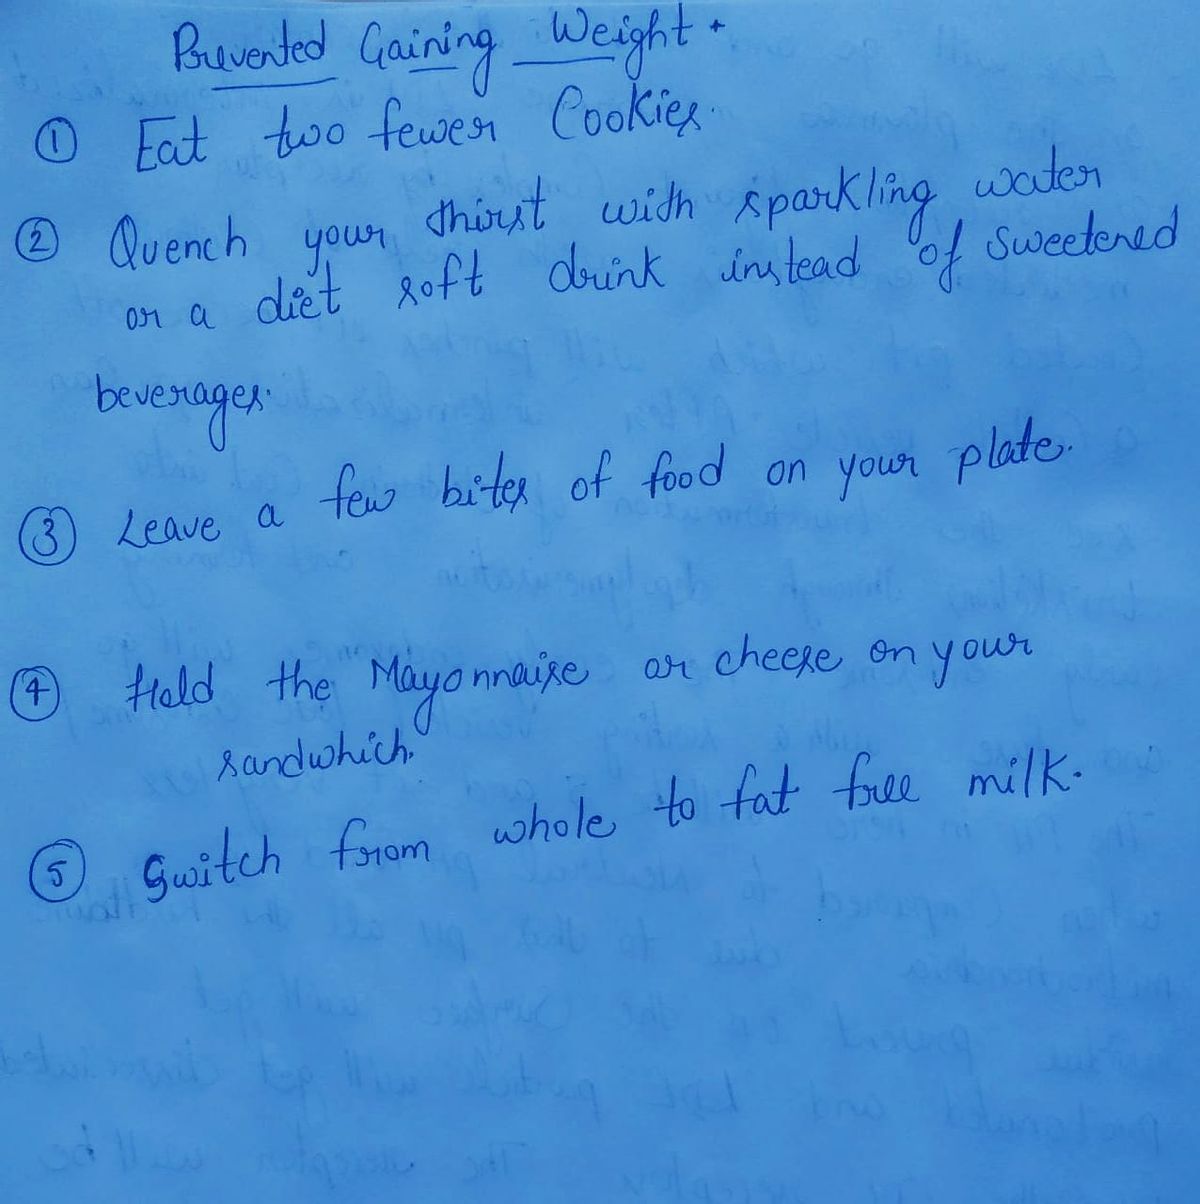 Prevented Gaining Weight
① Eat two fewer Cookies.
② Quench your thirst with sparkling water
or a diet soft drink instead of sweetened
beverages.
③ Leave a few bites of food on your plate.
④ Hold the Mayonnaise or cheese on your
sandwhich.
⑤ Switch from whole to fat free milk.